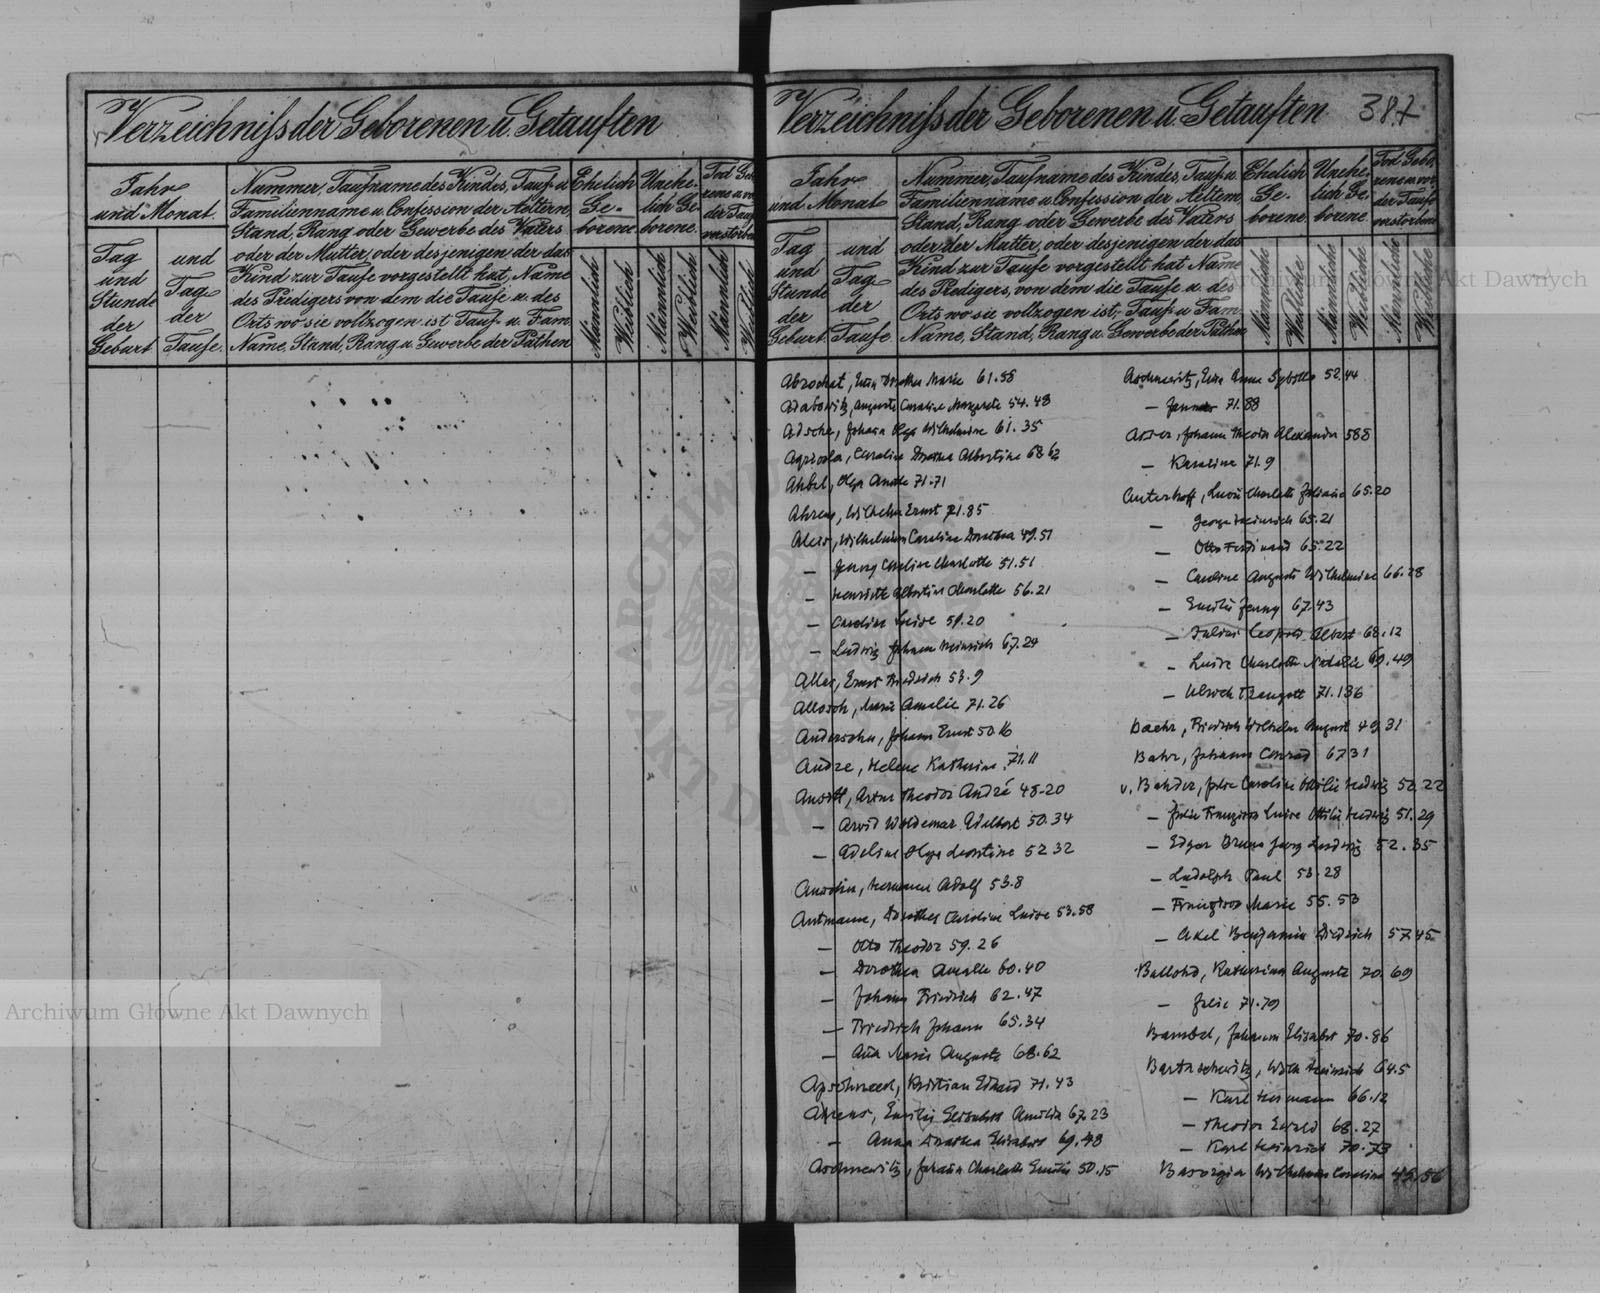 Verzeichniſs der Geborenen u. Getauften
Jahr
und Monat.
Tag
und
Stunde
der
Geburt
und
Tag
der
Taufe.
Nummer, Taufname des Kindes, Tauf- u.
Familienname u. Confession der Aeltern,
Stand, Rang oder Gewerbe des Vaters
oder der Mutter, oder desjenigen der das
Kind zur Taufe vorgestellt hat, Name
des Predigers von dem die Taufe u. des
Orts wo sie vollzogen ist, Tauf- u. Fam.
Name, Stand, Rang u. Gewerbe der Pathen
Ehelich
Ge-
borene
Unehe-
lich Ge-
borene.
Tod Geb
rene u. vo
der Tauf
verstorben
Männlich
Weiblich
Männlich
Weiblich
Männlich
Weiblich
Verzeichniſs der Geborenen u. Getauften 387
Jahr
und Monat
Tag
und
Stunde
der
Geburt
und
Tag
der
Taufe
Nummer, Taufname des Kindes, Tauf- u.
Familienname u. Confession der Aeltern,
Stand, Rang oder Gewerbe des Vaters
oder der Mutter, oder desjenigen der das
Kind zur Taufe vorgestellt hat, Name
des Predigers, von dem die Taufe u. des
Orts wo sie vollzogen ist, Tauf- u. Fam.
Name, Stand, Rang u. Gewerbe der Pathen
Ehelich
Ge-
borene
Unehe-
lich Ge-
borene
Tod Gebo
rene u. vor
der Taufe
verstorbene
Männliche
Weibliche
Männliche
Weibliche
Männliche
Weibliche
Dorothea Marie 61.58
Auguste Caroline Margarete 54.48
Adsche, Johann Olga Wilhelmine 61.35
Agricola, Caroline Dorothea Albertine 68.62
Ahbel, Olga 71.71
Ahrens, Wilhelm Ernst 71.85
Wilhelmine Caroline Dorothea 49.51
— Jenny Caroline Charlotte 51.51
— Henriette Albertine Charlotte 56.21
— Caroline Luise 59.20
— Ludwig Johann Heinrich 67.24
Ernst Friedrich 53.9
Marie Amalie 71.26
Andersohn, Johann Ernst 50.16
Andre, Helene Katharine 71.11
Artur Theodor André 48.20
— Arvid Woldemar Adelbert 50.34
— Adeline Olga Leontine 52 32
Hermann Adolf 53.8
Antmann, Dorothea Caroline Luise 53.58
— Otto Theodor 59.26
— Dorothea Amalie 60.40
— Johann Friedrich 62.47
— Friedrich Johann 65.34
— Anna Marie Auguste 68.62
Apschneed, Kristian Eduard 71.43
Ahrens, Emilie Elisabet Amalia 67.23
— Anna Dorothea Elisabet 69.48
Aschnewitz, Johann Charlotte Emilie 50.15
Aschnewitz, Anna Sybille 52.44
— 71.88
Johann Theodor Alexander 58 8
— Karoline 71.9
Charlotte Juliane 65.20
— Georg Heinrich 65.21
— Otto Ferdinand 65.22
— Caroline Auguste Wilhelmine 66.28
— Emilie Jenny 67.43
— Julius Leopold Albert 68.12
— Luise Charlotte Natalie 69.49
— Ulrich Traugott 71.136
Baehr, Friedrich Wilhelm August 49.31
Bahr, Johann Conrad 67 31
v. Bahder, Julie Caroline Ottilie Hedwig 50.22
— Julie Franziska Luise Ottilie Hedwig 51.29
— Edgar Bruno Georg Ludwig 52.35
— Ludolph Paul 53.28
— Franziska Marie 55.53
— Axel Benjamin Friedrich 57.45
Ballohd, Katharina Auguste 70.69
— Julie 71.79
Johann Elisabet 70.86
Bartuschewitz, Wilh Heinrich 64.5
— Karl Hermann 66.12
— Theodor Ewald 68.27
— Karl Heinrich 70.73
Wilhelmine Caroline 45.56
Archiwum Główne Akt Dawnych
Archiwum Główne Akt Dawnych